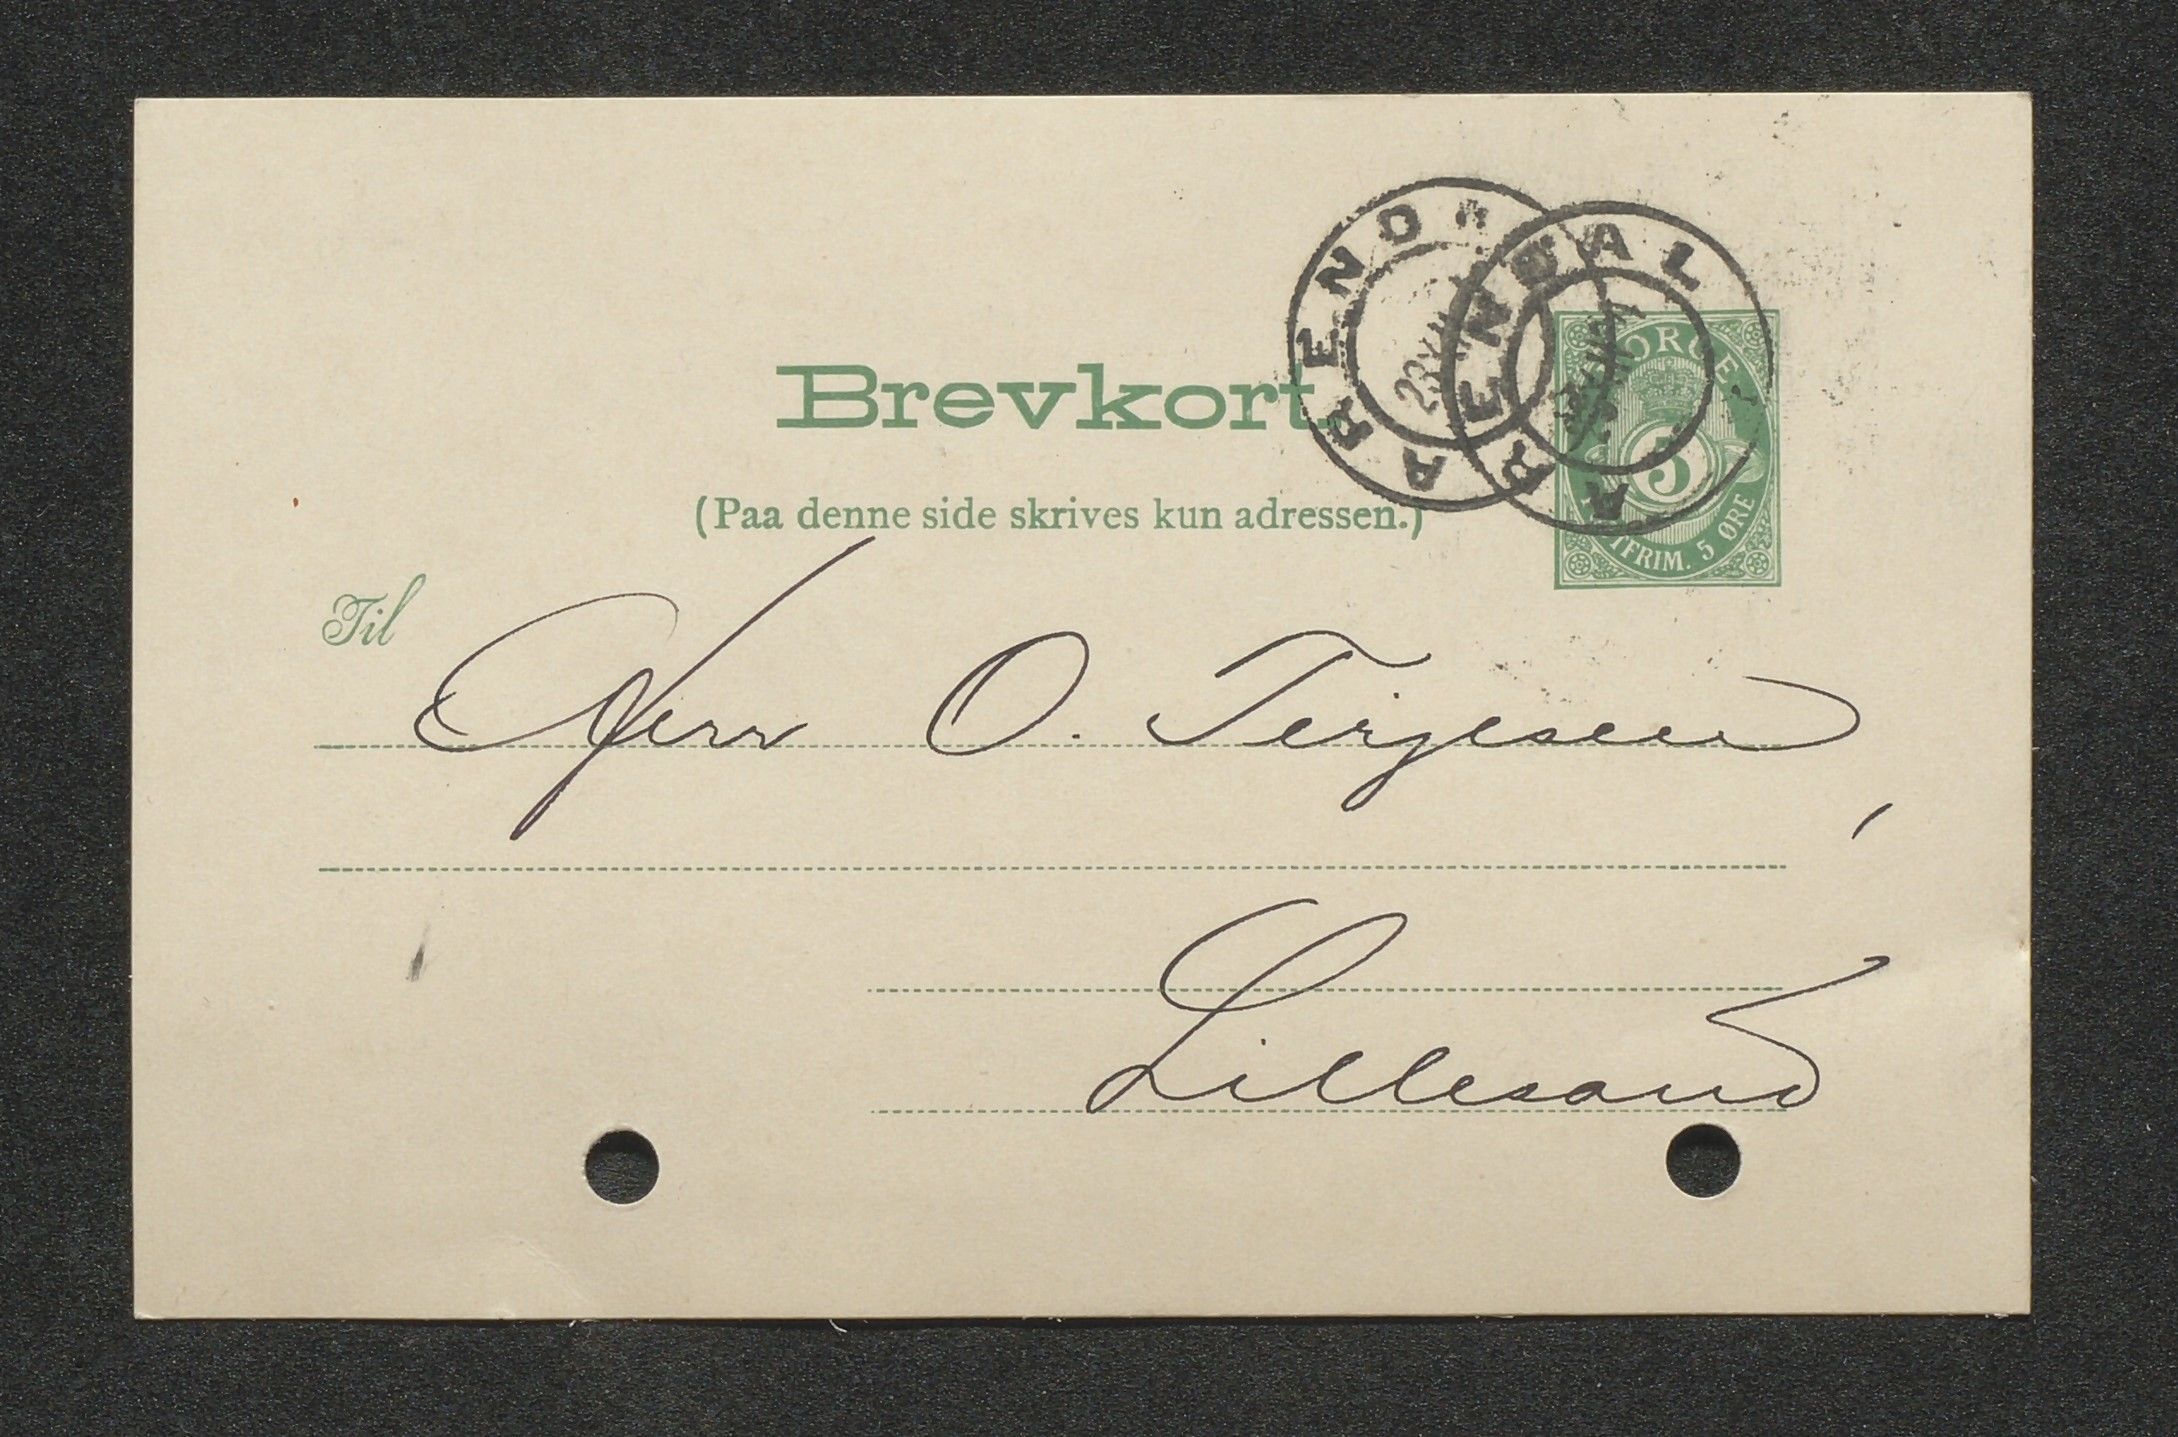 Brevkort
(Paa denne side skrives kun adressen.)
ARENDAL
ARENDAL
NORGE
5
FRIM. 5 ØRE
Til
Herr O. Terjesen,
Lillesand